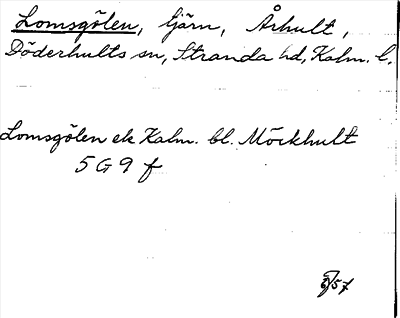 Lomsgölen, tjärn, Århult,
Döderhults sn, Stranda hd, Kalm. l.
Lomsgölen ek Kalm. bl. Möckhult
5 G 9 f
/57